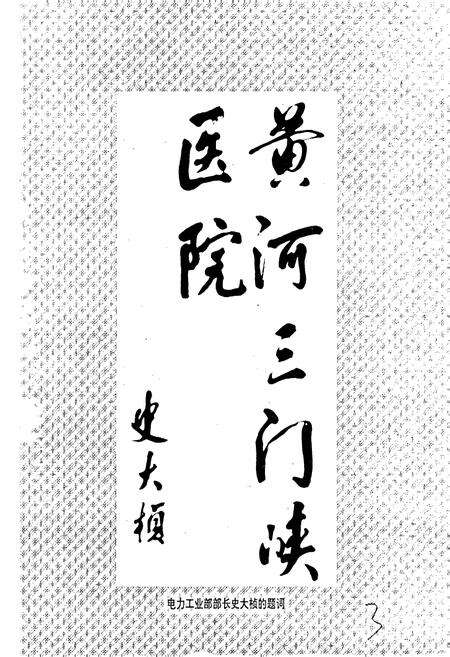 黄河三门峡
医院
史大桢
电力工业部部长史大桢的题词
3